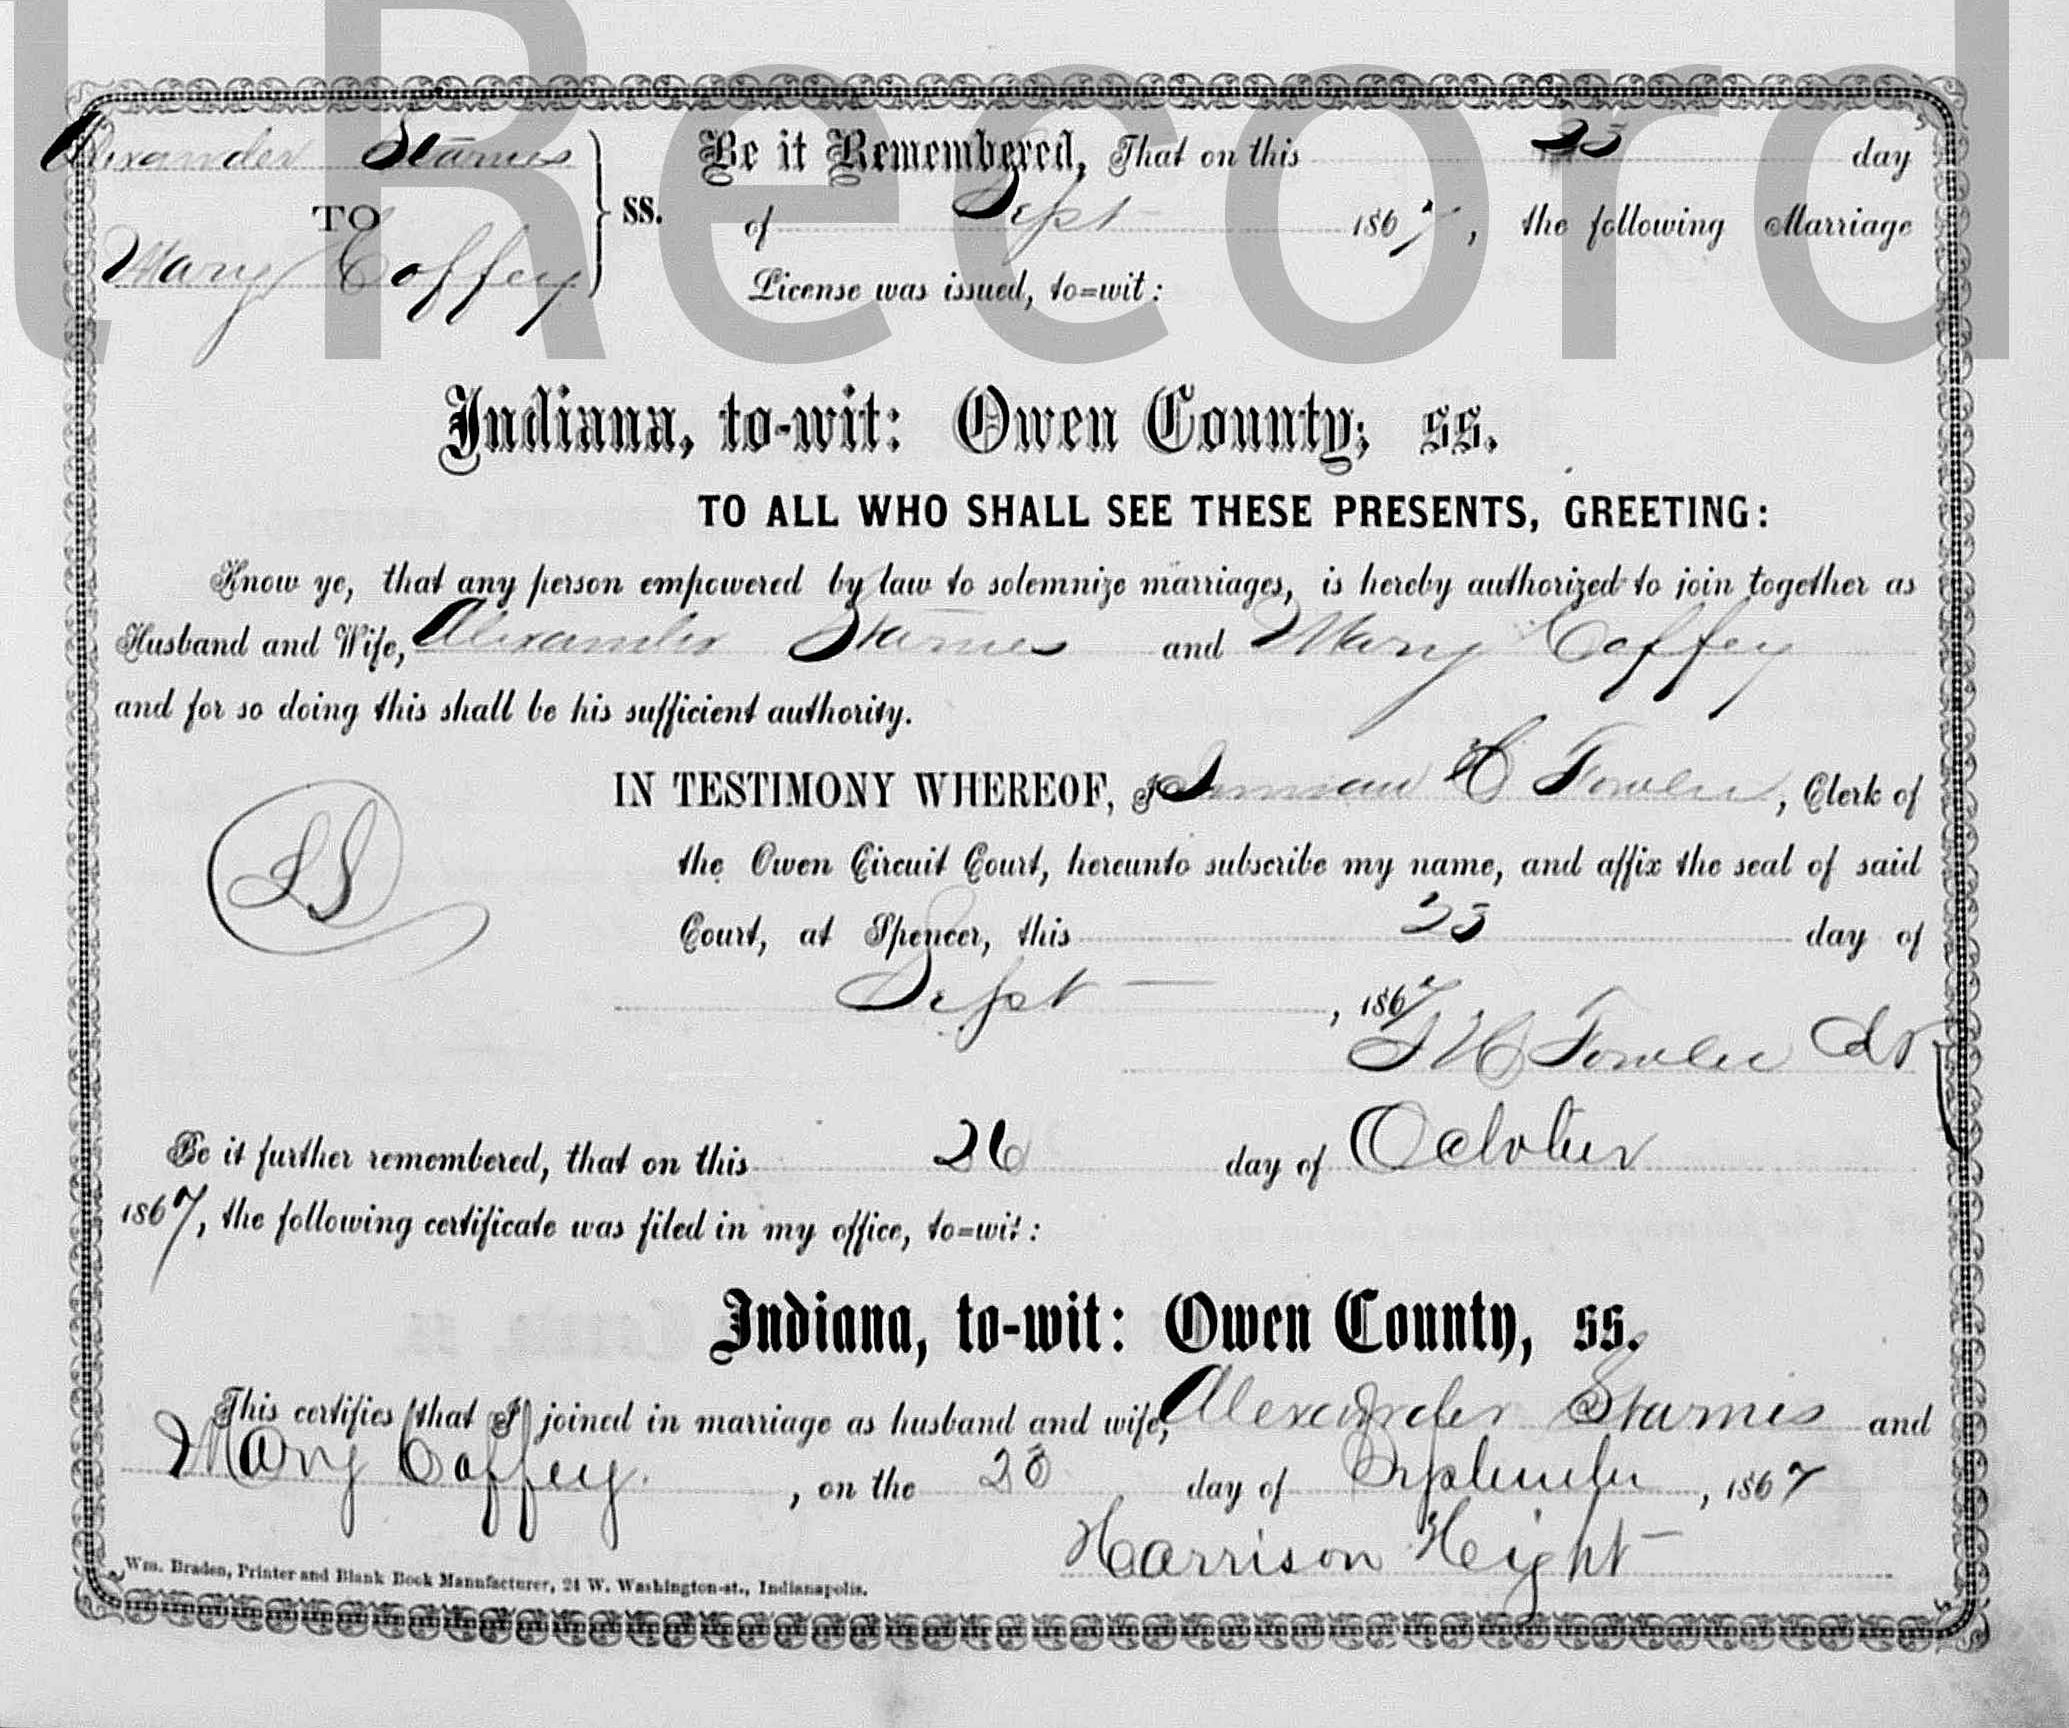 t Record
Alexander Starnes
TO
Mary Coffey
} ss.
Be it Remembered, That on this 23 day
of Sept 1867, the following Marriage
License was issued, to=wit:
Indiana, to-wit: Owen County; ss.
TO ALL WHO SHALL SEE THESE PRESENTS, GREETING:
Know ye, that any person empowered by law to solemnize marriages, is hereby authorized to join together as
Husband and Wife, Alexander Starnes and Mary Coffey
and for so doing this shall be his sufficient authority.
IN TESTIMONY WHEREOF, I H Fowler, Clerk of
LS
the Owen Circuit Court, hereunto subscribe my name, and affix the seal of said
Court, at Spencer, this 23 day of
Sept, 1867
H Fowler
Be it further remembered, that on this 26 day of October
1867, the following certificate was filed in my office, to=wit:
Indiana, to-wit: Owen County, ss.
This certifies that I joined in marriage as husband and wife, Alexander Starnes and
Mary Coffey. , on the day of September, 1867
Harrison Hight
Wm. Braden, Printer and Blank Book Manufacturer, 21 W. Washington-st., Indianapolis.